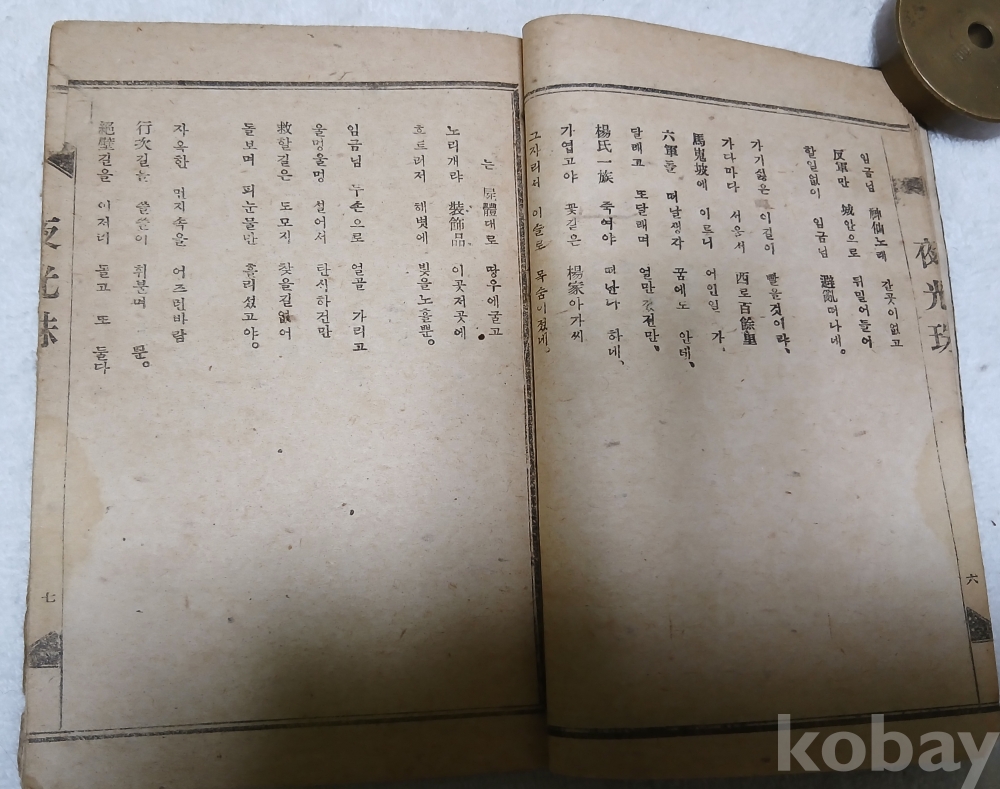 夜光珠
임금님 神仙노래 간곳이없고
反軍만 城안으로 뒤밀어들어
할일없이 임금님 避亂떠나네。
가기싫은 이길이
가다마다 서운서 西로百餘里
馬嵬坡에 이르니 어인일 가、
六軍들 떠날생각 꿈에도 안데、
달래고 또달래며 얼만 전만、
楊氏一族 죽여야 떠난다 하네、
가엽고야 꽃같은 楊家아가씨
그자리서 이슬로 목숨이졌네、
六
는 屍體대로 땅우에굴고
노리개랴 裝飾品 이곳저곳에
흐트러저 해볏에 빛을노흘뿐。
임금님 두손으로 얼골 가리고
울멍울멍 설어서 탄식하건만
救할길은 도모지 찾을길없어
돌보며 피눈물만 흘리셨고야。
자옥한 먼지속을 어즈런바람
行次길을 쓸쓸이 휘분며 문。
絕壁길을 이저네 돌고 또 돌다
夜光珠
七
kobay